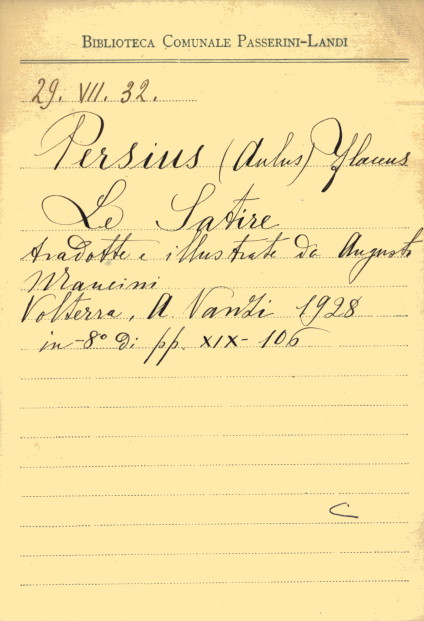 BIBLIOTECA COMUNALE PASSERINI-LANDI
29. VII. 32.
Persius (Aulus) Flacus
Le Satire
tradotte e illustrate da Augusto
Mancini
Volterra, A. Vanzi 1928
in-8° di pp. XIX-106
C